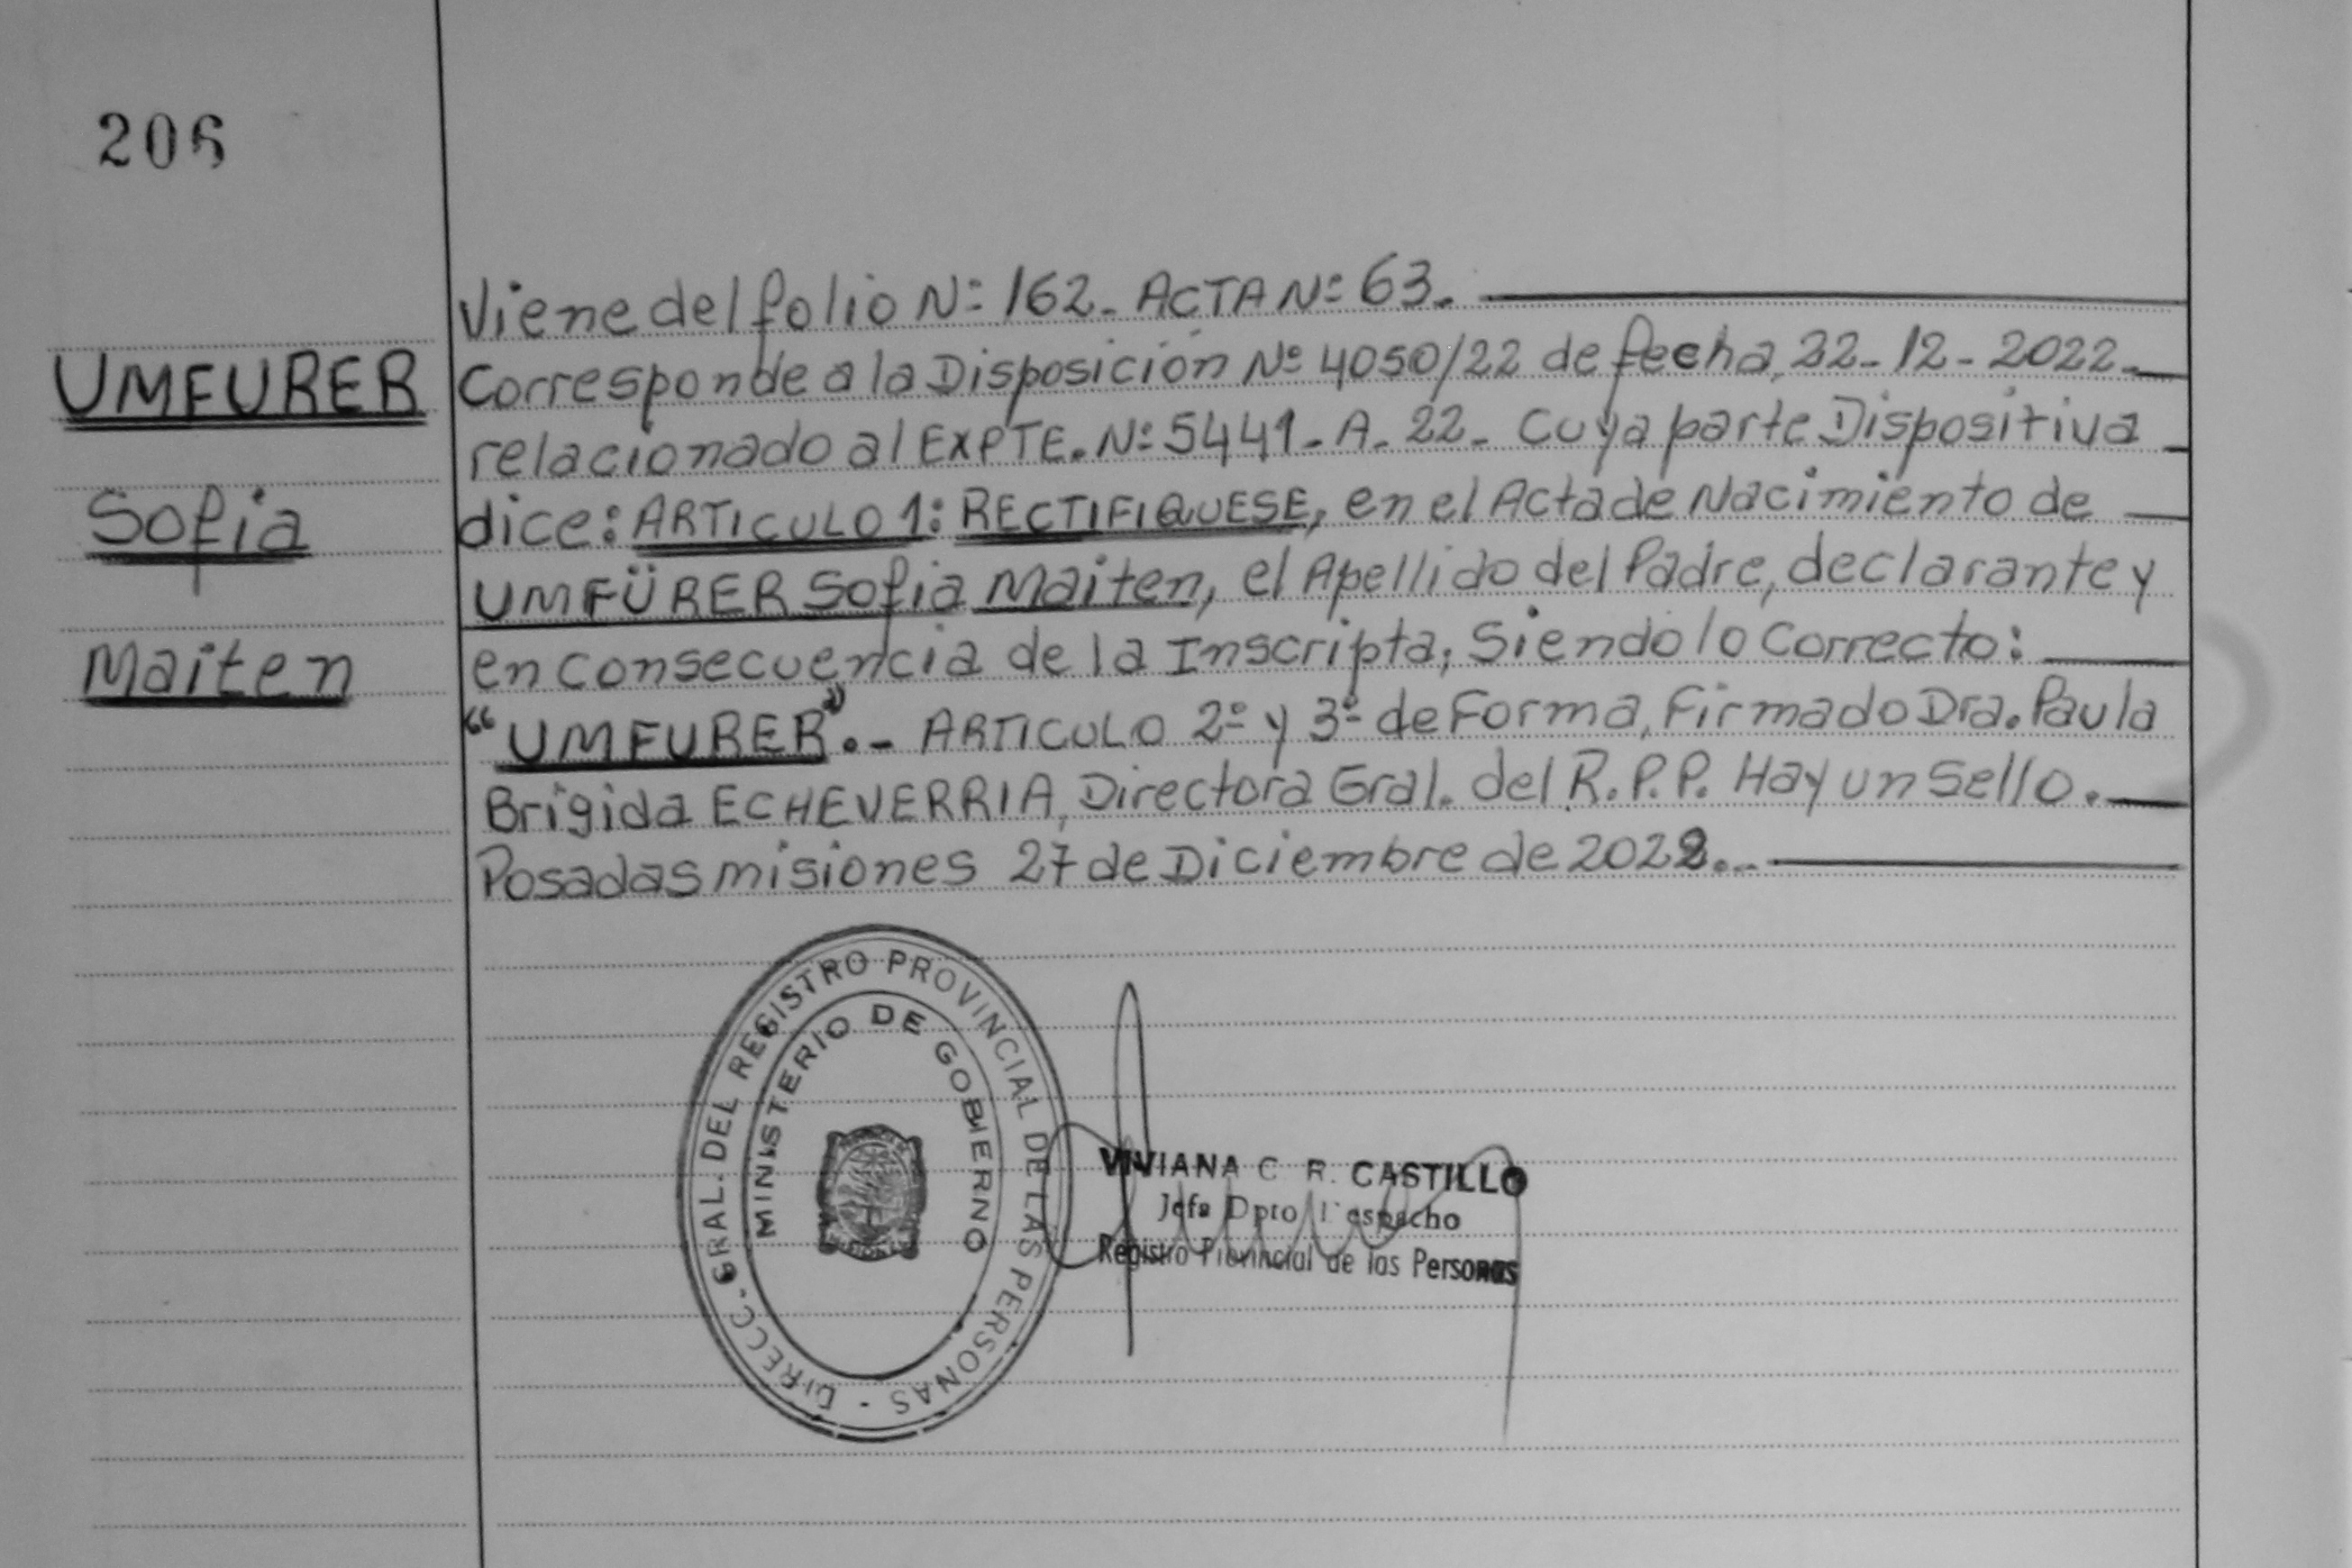 206
UMFURER
Sofia
Maiten
Viene del folio Nº 162. ACTA Nº 63.
Corresponde a la Disposición Nº 4050/22 de fecha, 22-12-2022.
relacionado al EXPTE. Nº 5441-A-22- Cuya parte Dispositiva
dice: ARTICULO 1: RECTIFIQUESE, en el Acta de Nacimiento de
UMFÜRER Sofia Maiten, el Apellido del Padre, declarante y
en consecuencia de la Inscripta, Siendo lo Correcto:
"UMFURER".- ARTICULO 2º y 3º de Forma, Firmado Dra. Paula
Brigida ECHEVERRIA, Directora Gral. del R.P.P. Hay un Sello.
Posadas misiones 27 de Diciembre de 2022.-
DIRECC. GRAL. DEL REGISTRO PROVINCIAL DE LAS PERSONAS -
MINISTERIO DE GOBIERNO
VIVIANA C R. CASTILLO
Jefa Dpto Despacho
Registro Provincial de las Personas